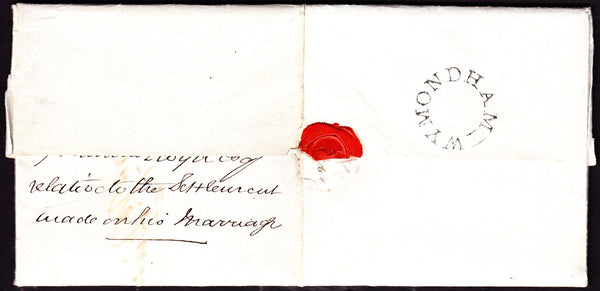 WYMONDHAM
Esq
relative to the Settlement
made on his Marriage